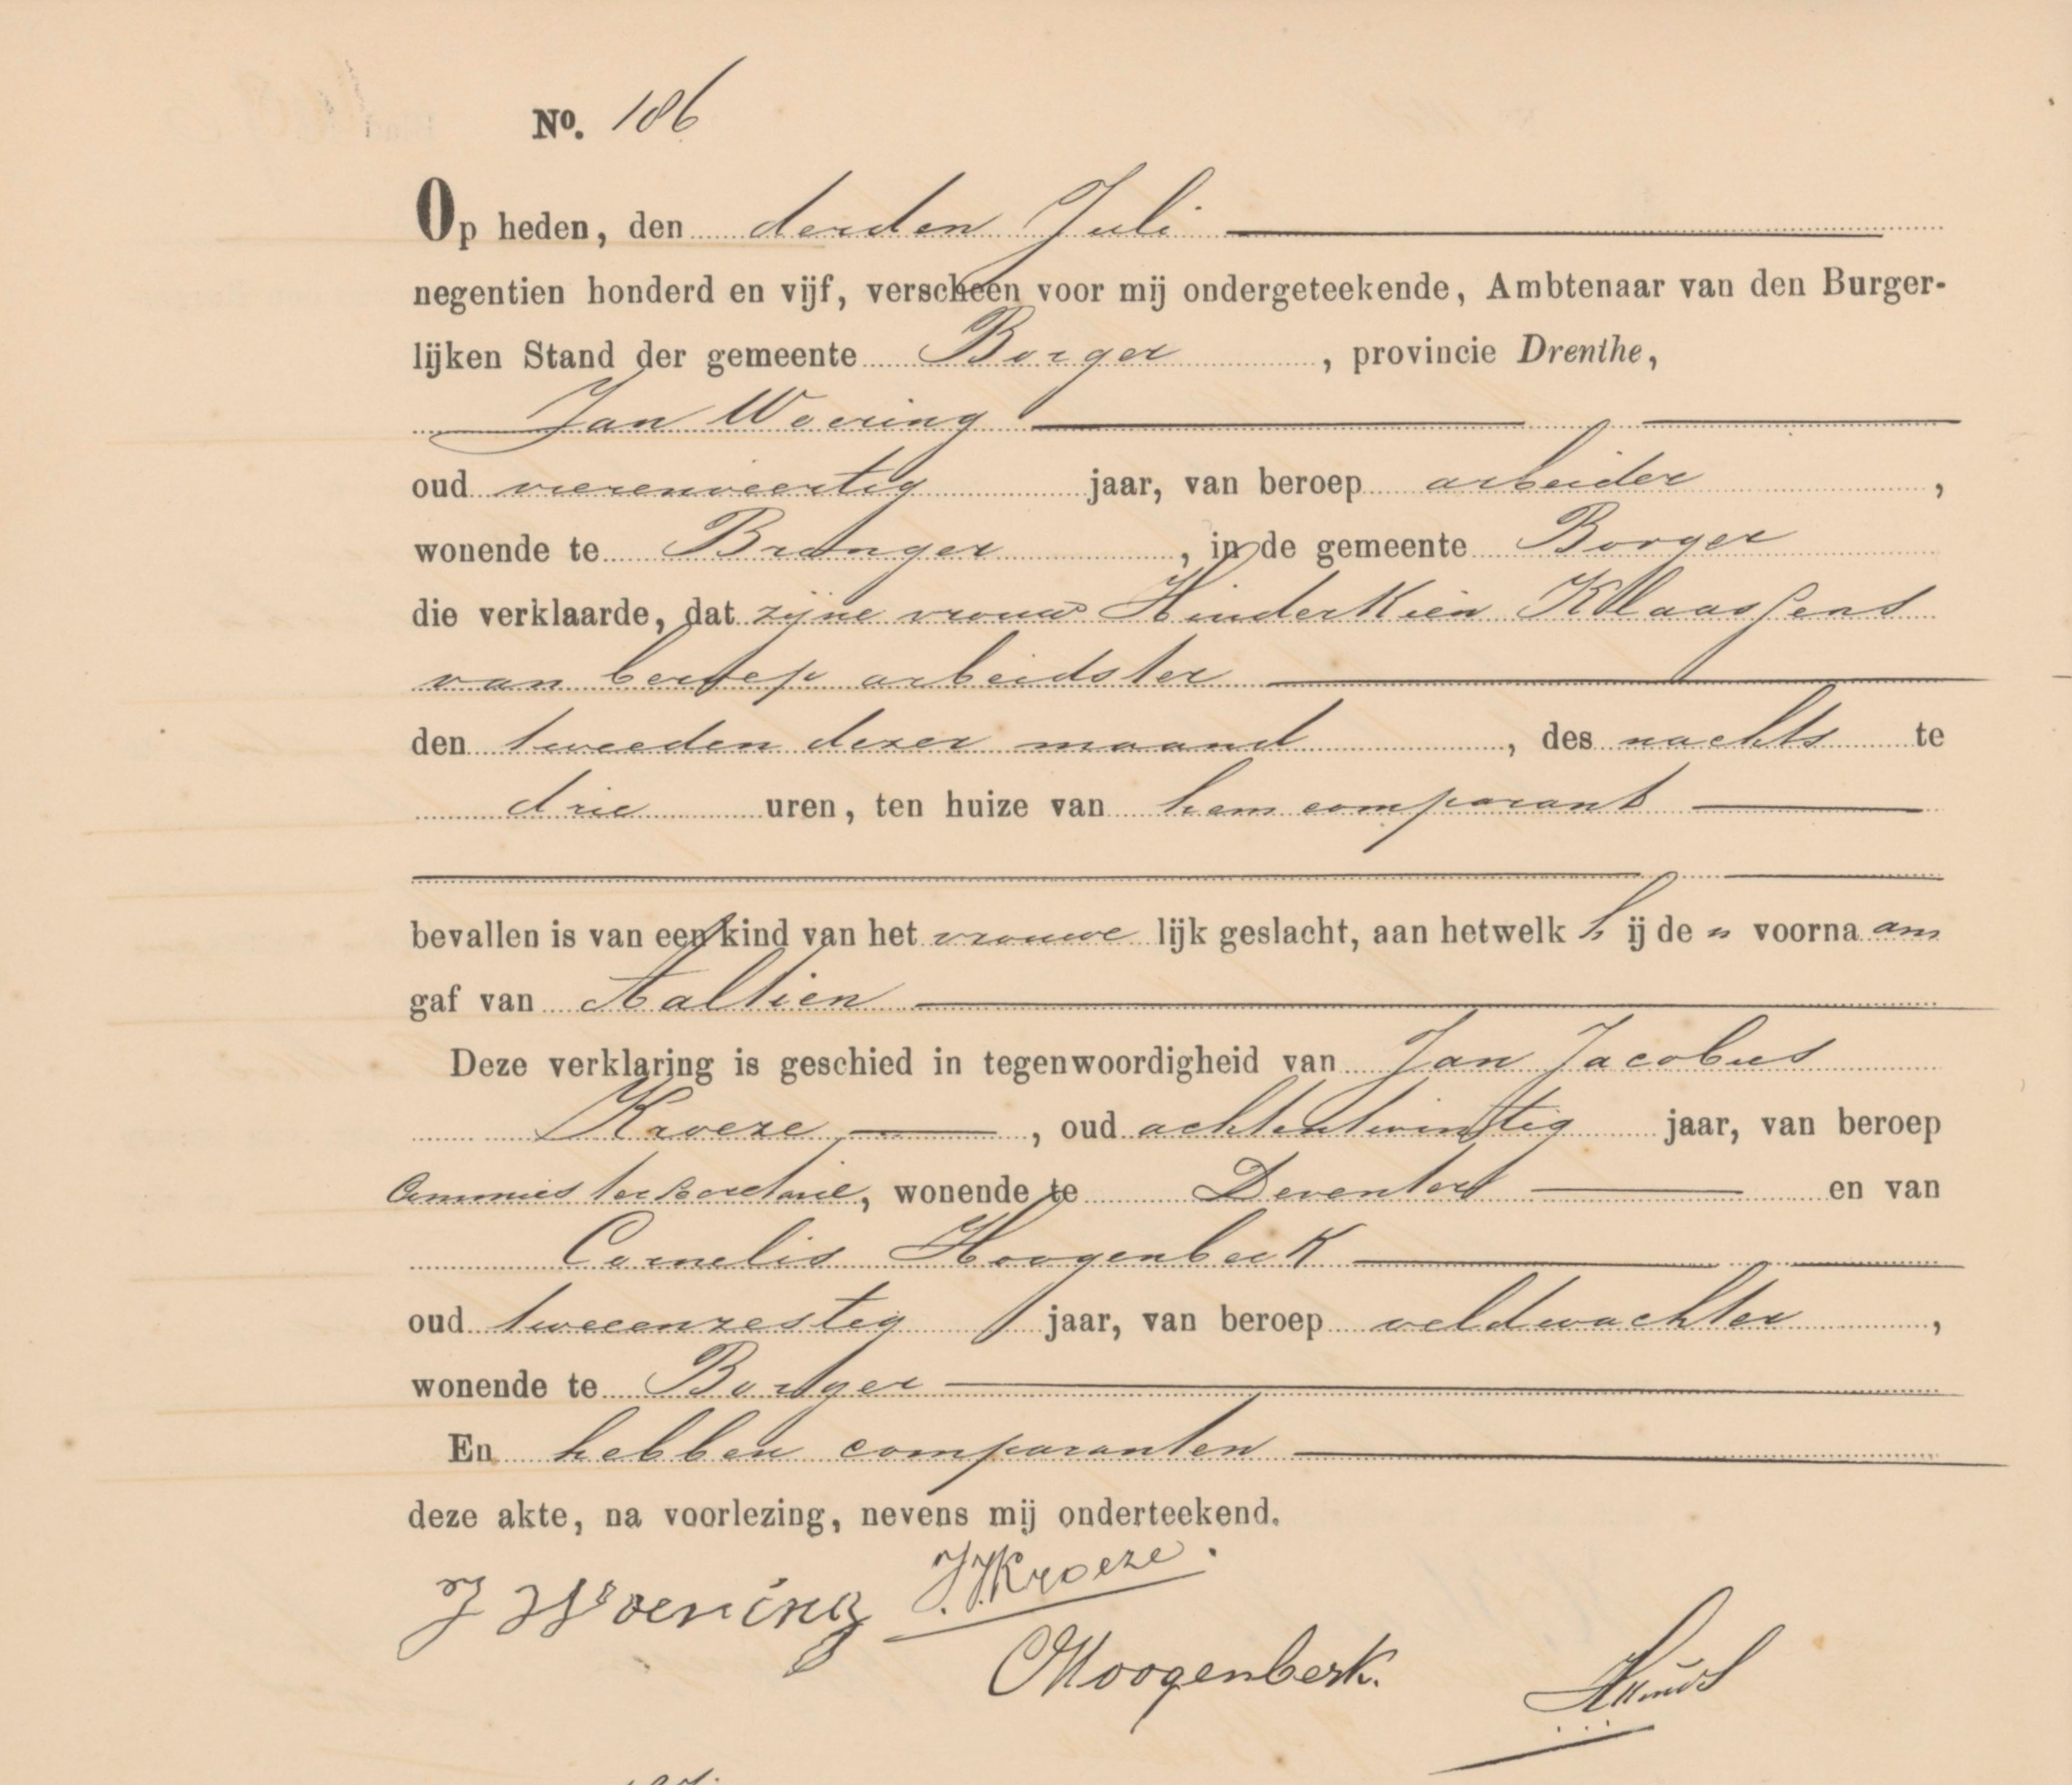 No. 186
Op heden, den derden Juli
negentien honderd en vijf, verscheen voor mij ondergeteekende, Ambtenaar van den Burger-
lijken Stand der gemeente Borger, provincie Drenthe,
Jan Woering
oud vierenveertig jaar, van beroep arbeider,
wonende te Bronger, in de gemeente Borger
die verklaarde, dat zijne vrouw Hinderkien Klaassens
van beroep arbeidster
den tweeden dezer maand, des nachts te
drie uren, ten huize van hem comparant
bevallen is van een kind van het vrouwelijk geslacht, aan hetwelk hij den voornaam
gaf van Aaltien
Deze verklaring is geschied in tegenwoordigheid van Jan Jacobus
Kroeze, oud achtentwintig jaar, van beroep
Commies ter secretarie, wonende te Deventer en van
Cornelis Hoogenberk
oud tweeenzestig jaar, van beroep veldwachter,
wonende te Borger
En hebben comparanten
deze akte, na voorlezing, nevens mij onderteekend.
J Woering J.J. Kroeze.
CHoogenberk.